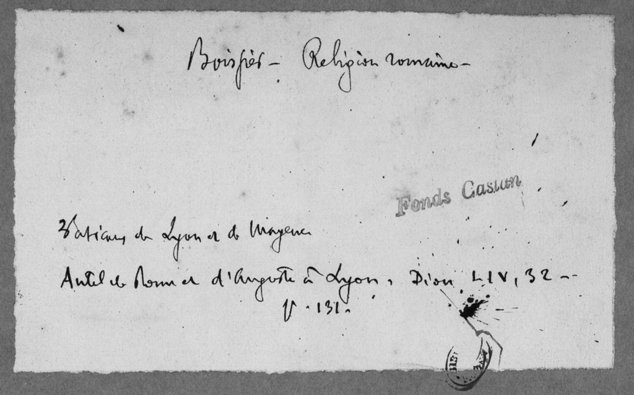 Boissier - Religion romaine -
Fonds Castan
Vatican de Lyon et de Mayence
Autel de Rome et d'Auguste à Lyon, Dion, LIV, 32 -
p. 131.